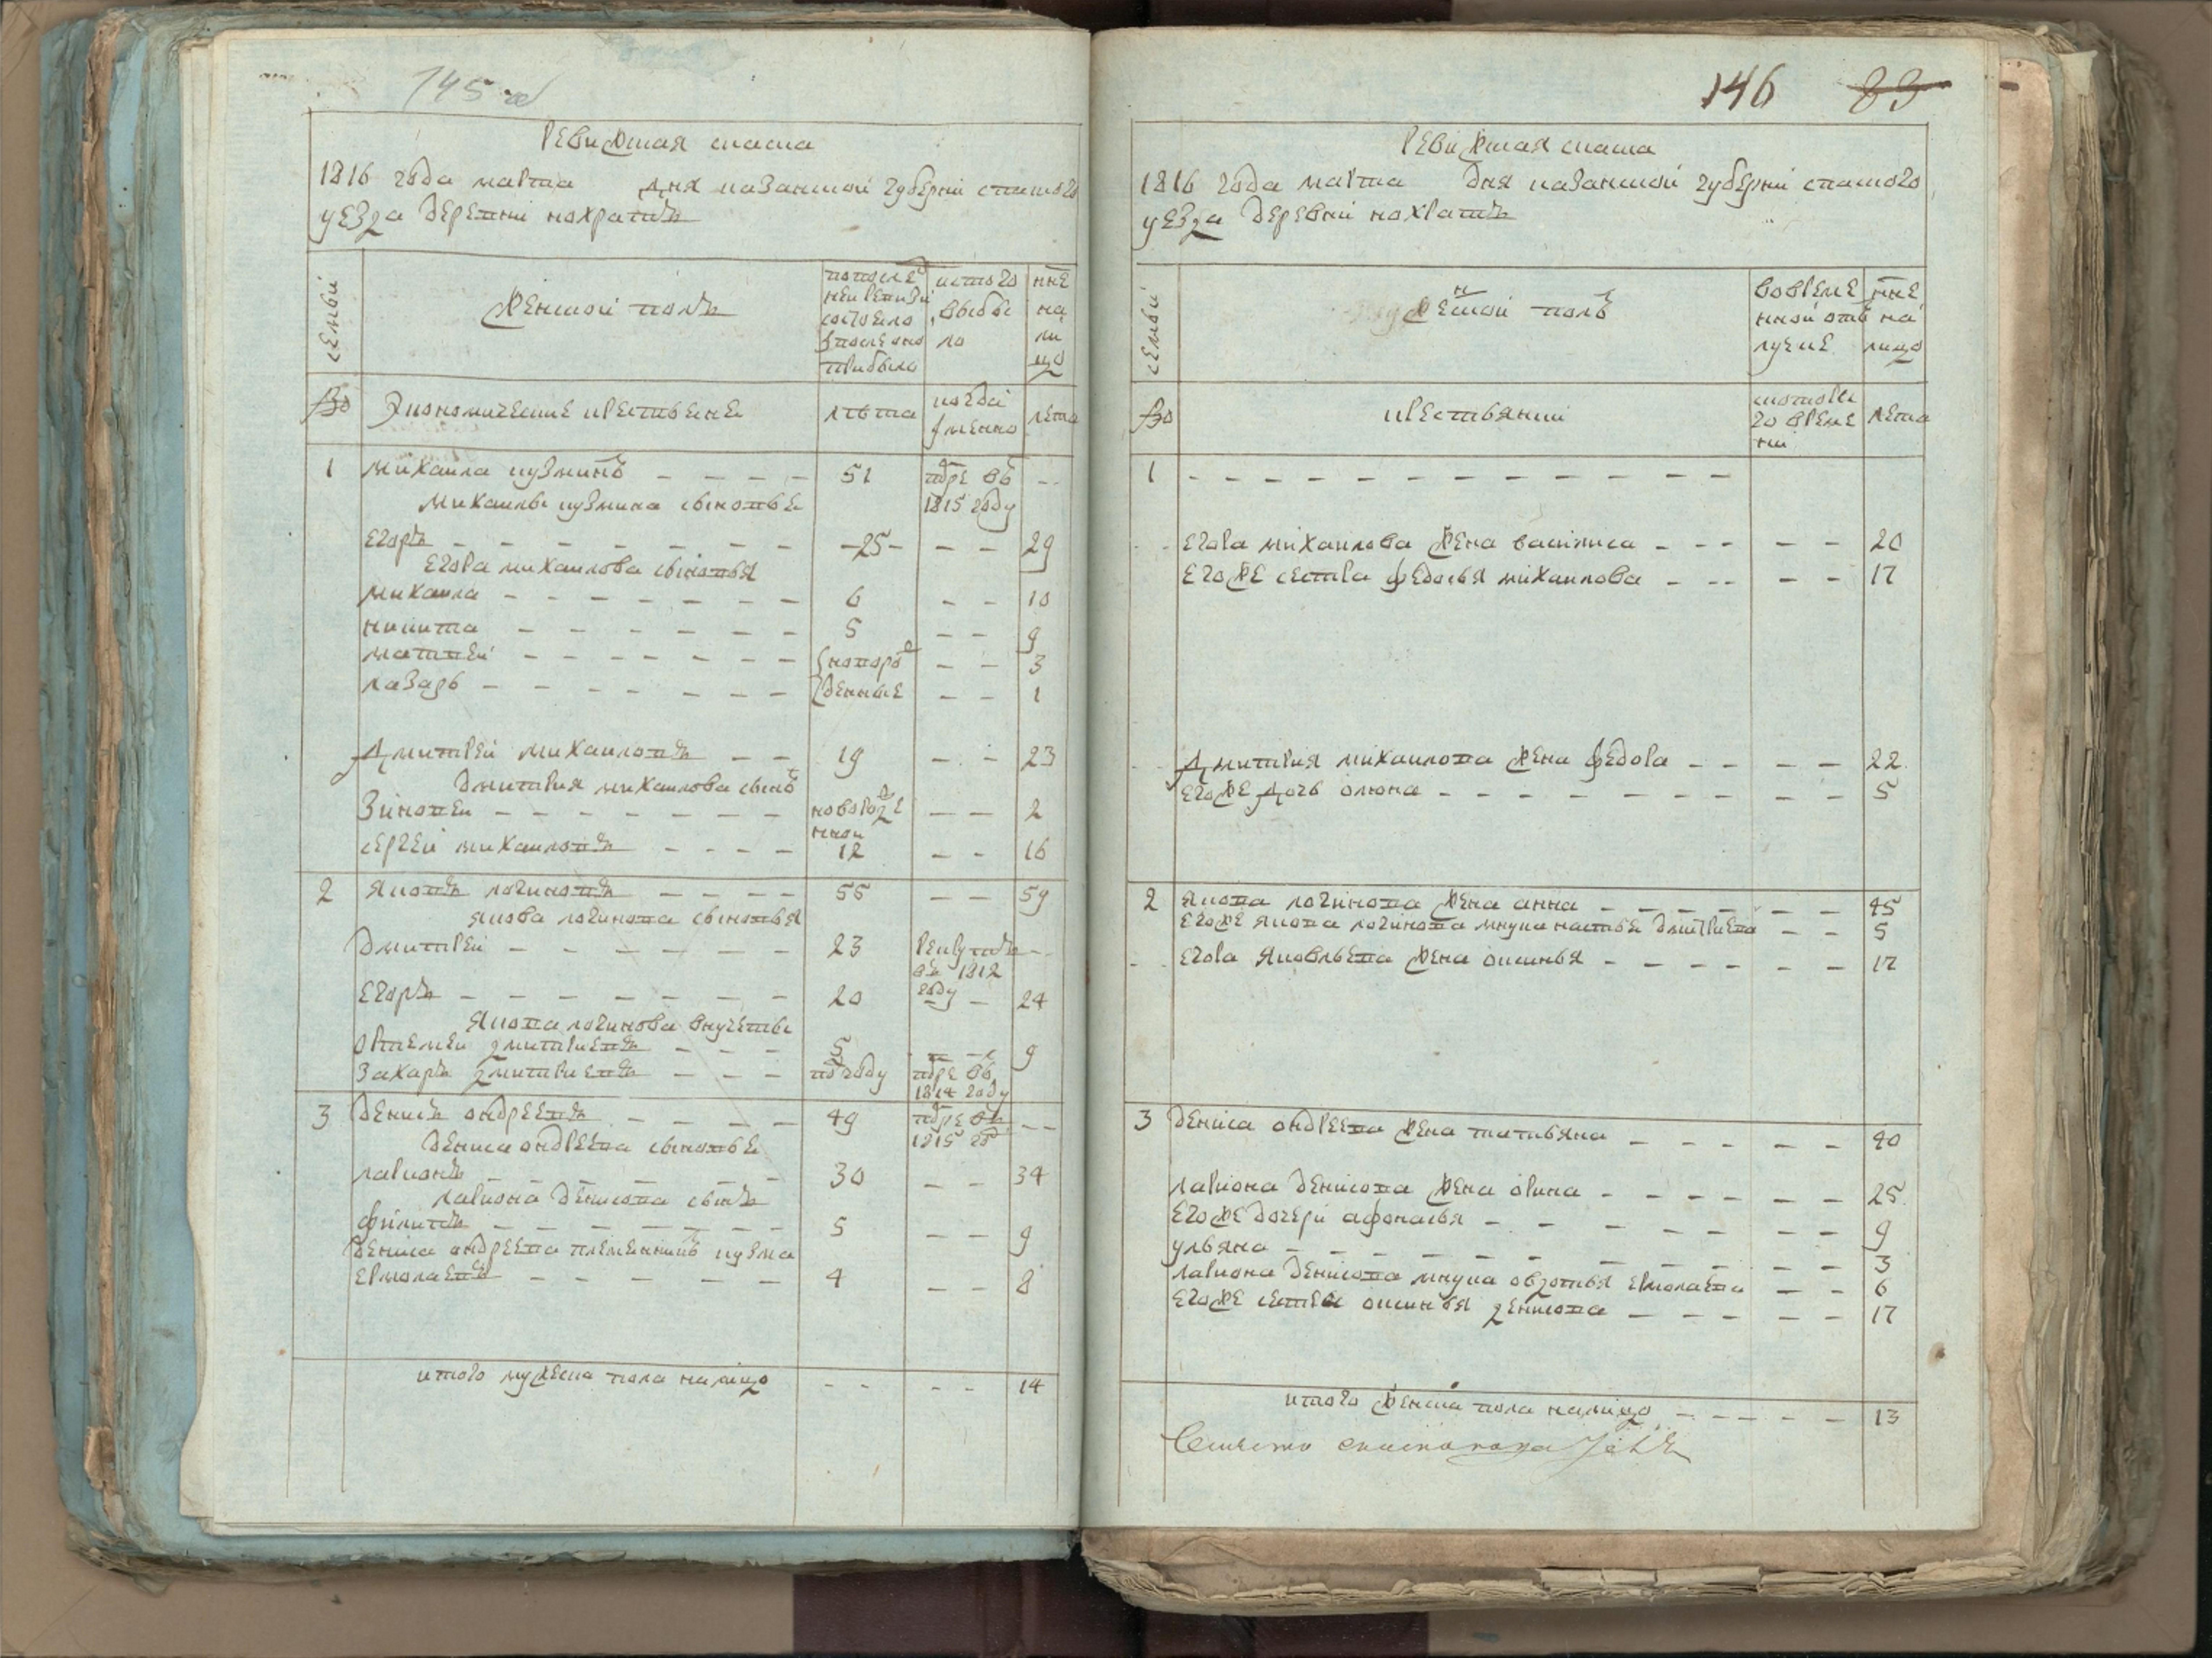 145 об
Ревижская скаска
1816 года марта дня казанской губерни спаского
уезда деревни кохрать
семьи
женской поль
по последней ревизи состоело и после оно прибыло
ис того выбыло
ныне на лицо
№
Экономические крестьене
лѣта
когда имянно
лета
1 михаила кузминъ 51 помре въ 1815 году
михаилы кузмина сыновье
егоръ 25 29
егора михаилова сыновья
михаила 6 10
никита 5 9
матвей новорожденные 3
лазарь 1
дмитрей михаиловъ 19 23
дмитрия михаилова сынъ
зиновеи новорожденнои 2
сергей михаиловъ 12 16
2 яковъ логиновъ 55 59
якова логинова сыновья
дмитрей 23 рекрутъ въ 1812 году
егоръ 20 24
якова логинова внучеты
ортемеи дмитриевъ 5 9
захаръ дмитриевъ по году помре въ 1814 году
3 денисъ ондреевъ 49 помре въ 1815 го
дениса ондреева сыновье
ларионъ 30 34
лариона денисова сынъ
филипъ 5 9
дениса ондреева племенникъ кузма
ермолаевъ 4 8
итого мужеска пола налицо 14
146 83
Ревижская скаска
1816 года марта дня казанской губерни спаского
уезда деревни кохрать
семьи
женской полъ
во временной отлучке
ныне на лицо
№
крестьянки
с которого времени
лета
1
егора михаилова жена василиса 20
егоже сестра федосья михаилова 17
дмитрия михаилова жена федора 22
егоже дочь олиона 5
2 якова логинова жена анна 45
егоже якова логинова внука настасья дмитриева 5
егора яковлева жена оксинья 17
3 дениса ондреева жена татьяна 40
лариона денисова жена орина 25
егоже дочери афонасья 9
ульяна 3
лариона денисова внука овдотья ермолаева 6
егоже сестра оксинья денисова 17
итого женска пола налицо 13